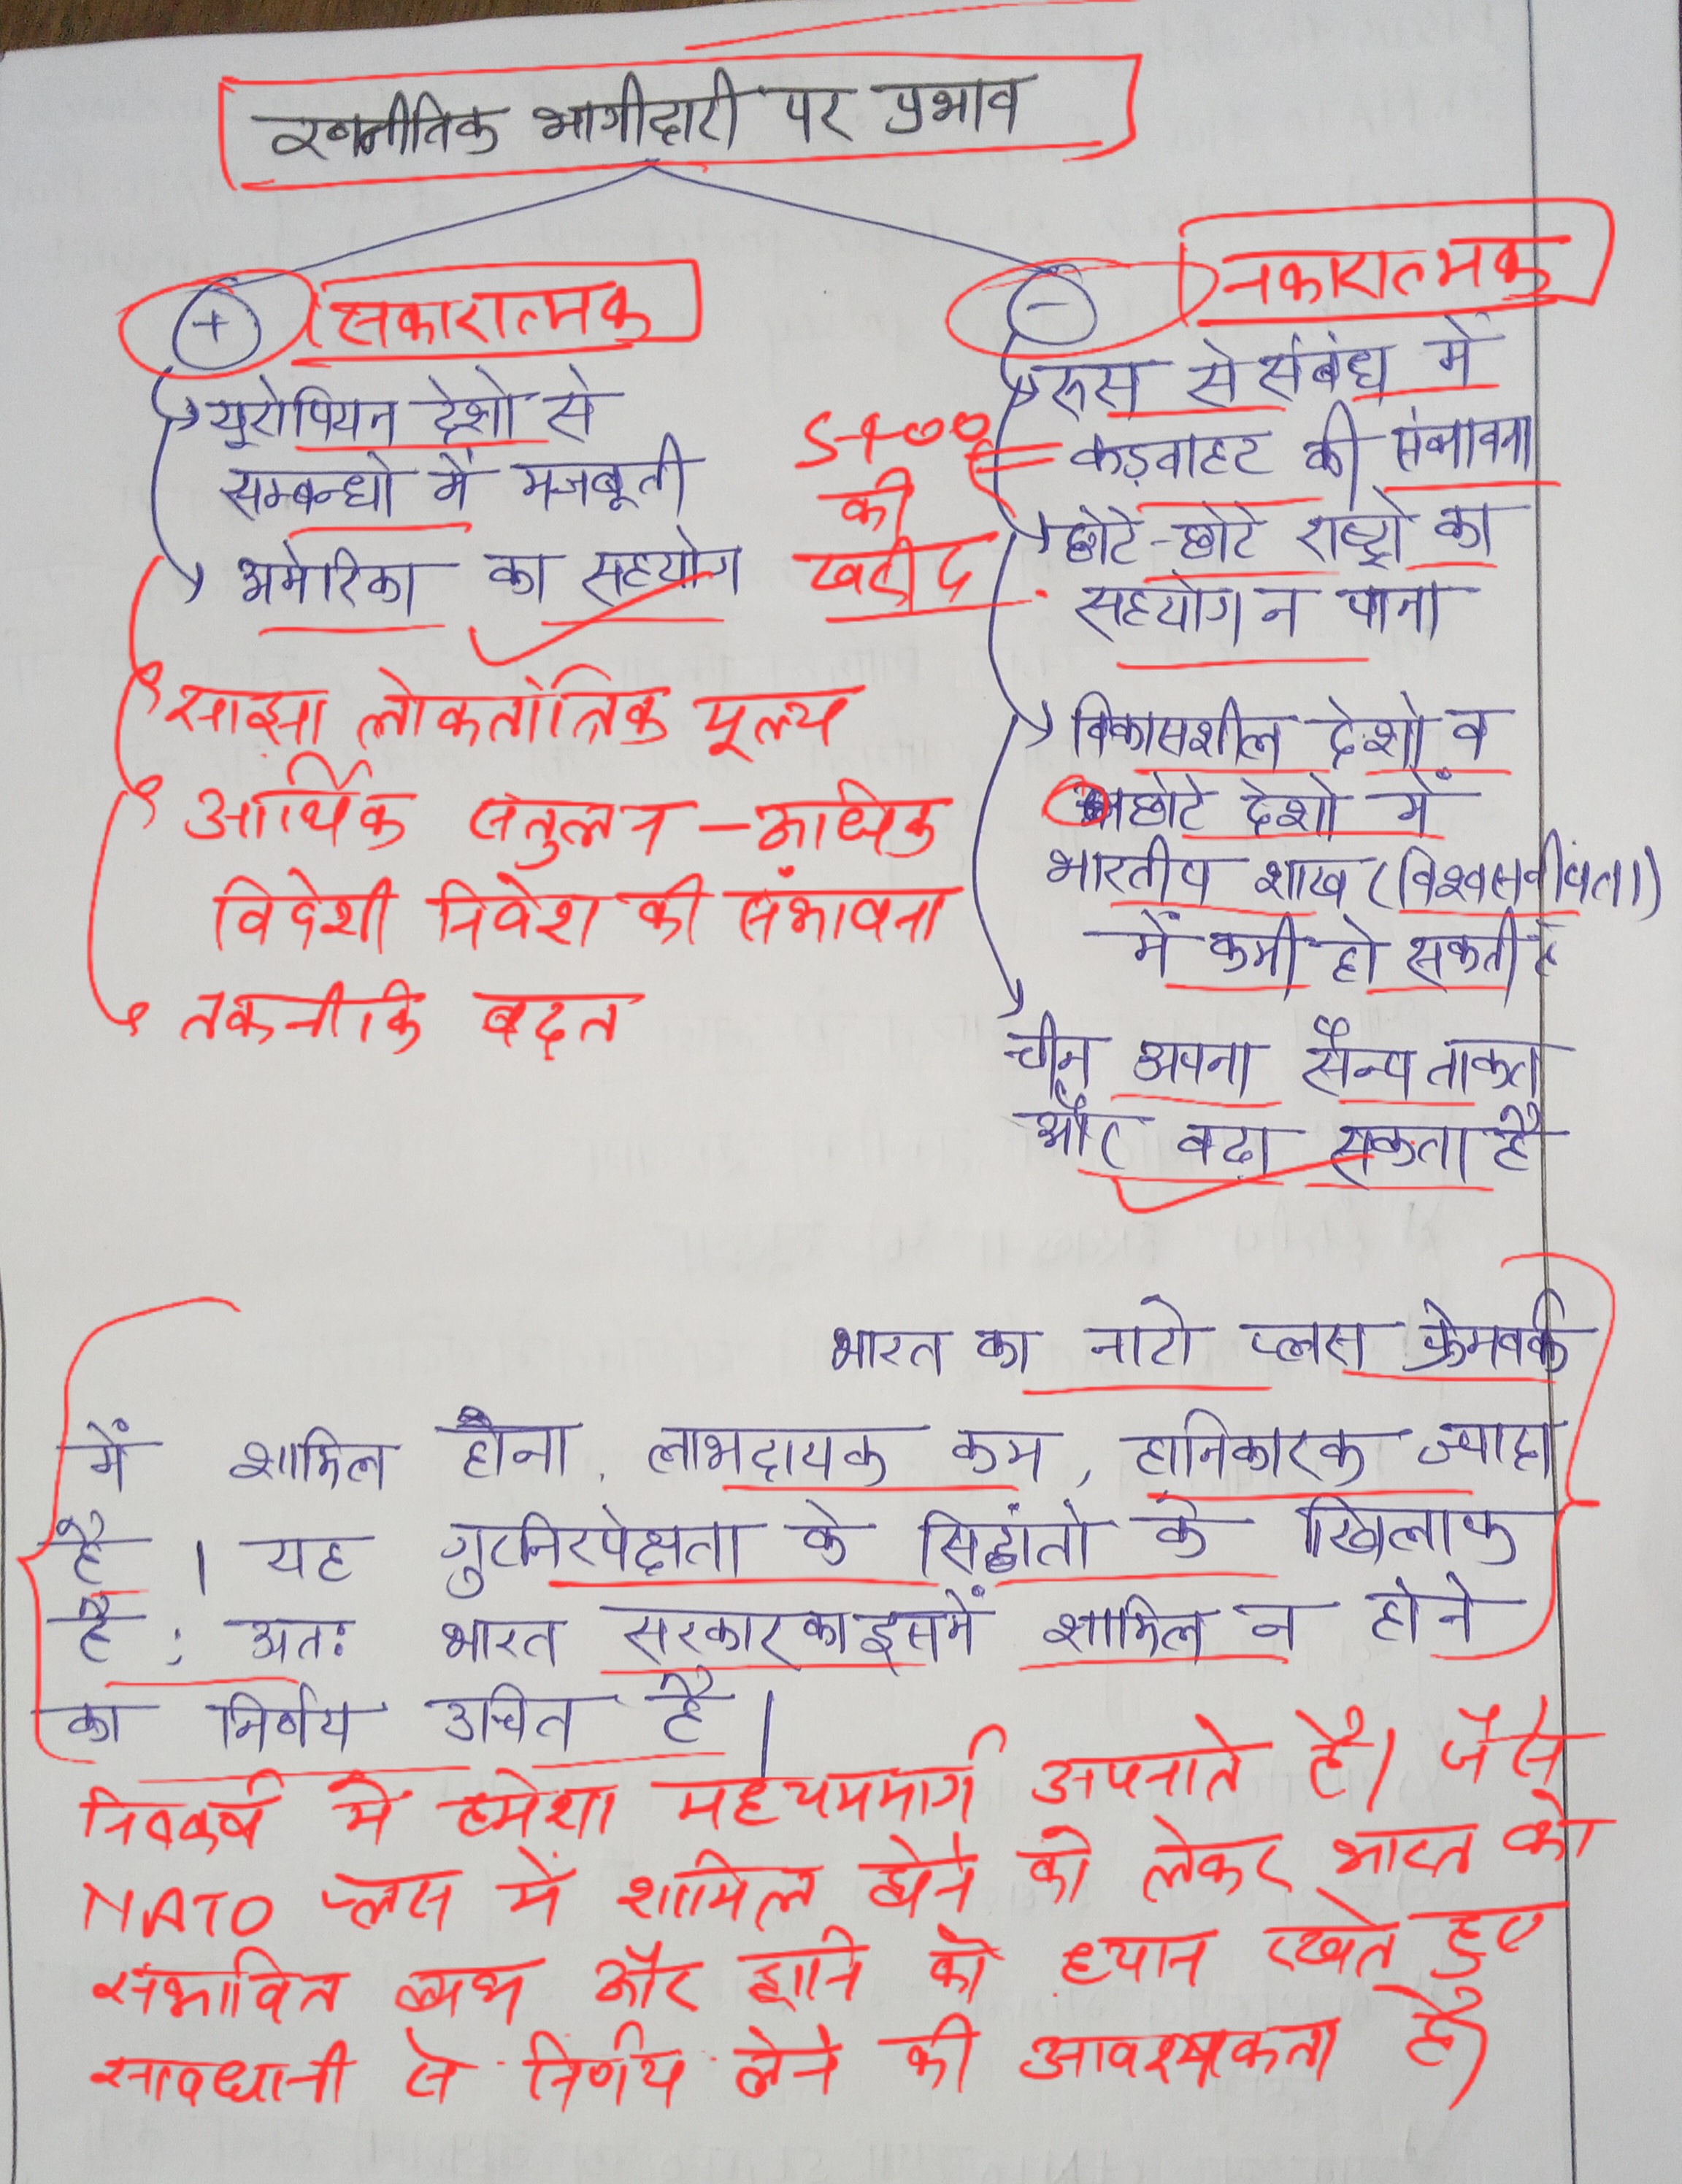 रणनीतिक भागीदारी पर प्रभाव
+ सकारात्मक
यूरोपियन देशो से
सम्बन्धो में मजबूती
अमेरिका का सहयोग
साझा लोकतांत्रिक मूल्य
आर्थिक संतुलन – आर्थिक
विदेशी निवेश की संभावना
तकनीकि बढ़त
- नकारात्मक
रूस से संबंध में
कड़वाहट की संभावना
S-400
की
खरीद
छोटे-छोटे राष्ट्रो का
सहयोग न पाना
विकासशील देशो व
छोटे देशो में
भारतीय शाख (विश्वसनीयता)
में कमी हो सकती है
चीन अपना सैन्य ताकत
और बढा सकता है
भारत का नाटो प्लस फ्रेमवर्क
में शामिल होना, लाभदायक कम, हानिकारक ज्यादा
है । यह गुटनिरपेक्षता के सिद्धांतो के खिलाफ
है; अतः भारत सरकार का इसमें शामिल न होने
का निर्णय उचित है |
निष्कर्ष में हमेशा मध्यममार्ग अपनाते है। जैसे
NATO प्लस में शामिल होने को लेकर भारत को
संभावित लाभ और हानि को ध्यान रखते हुए
सावधानी से निर्णय लेने की आवश्यकता है